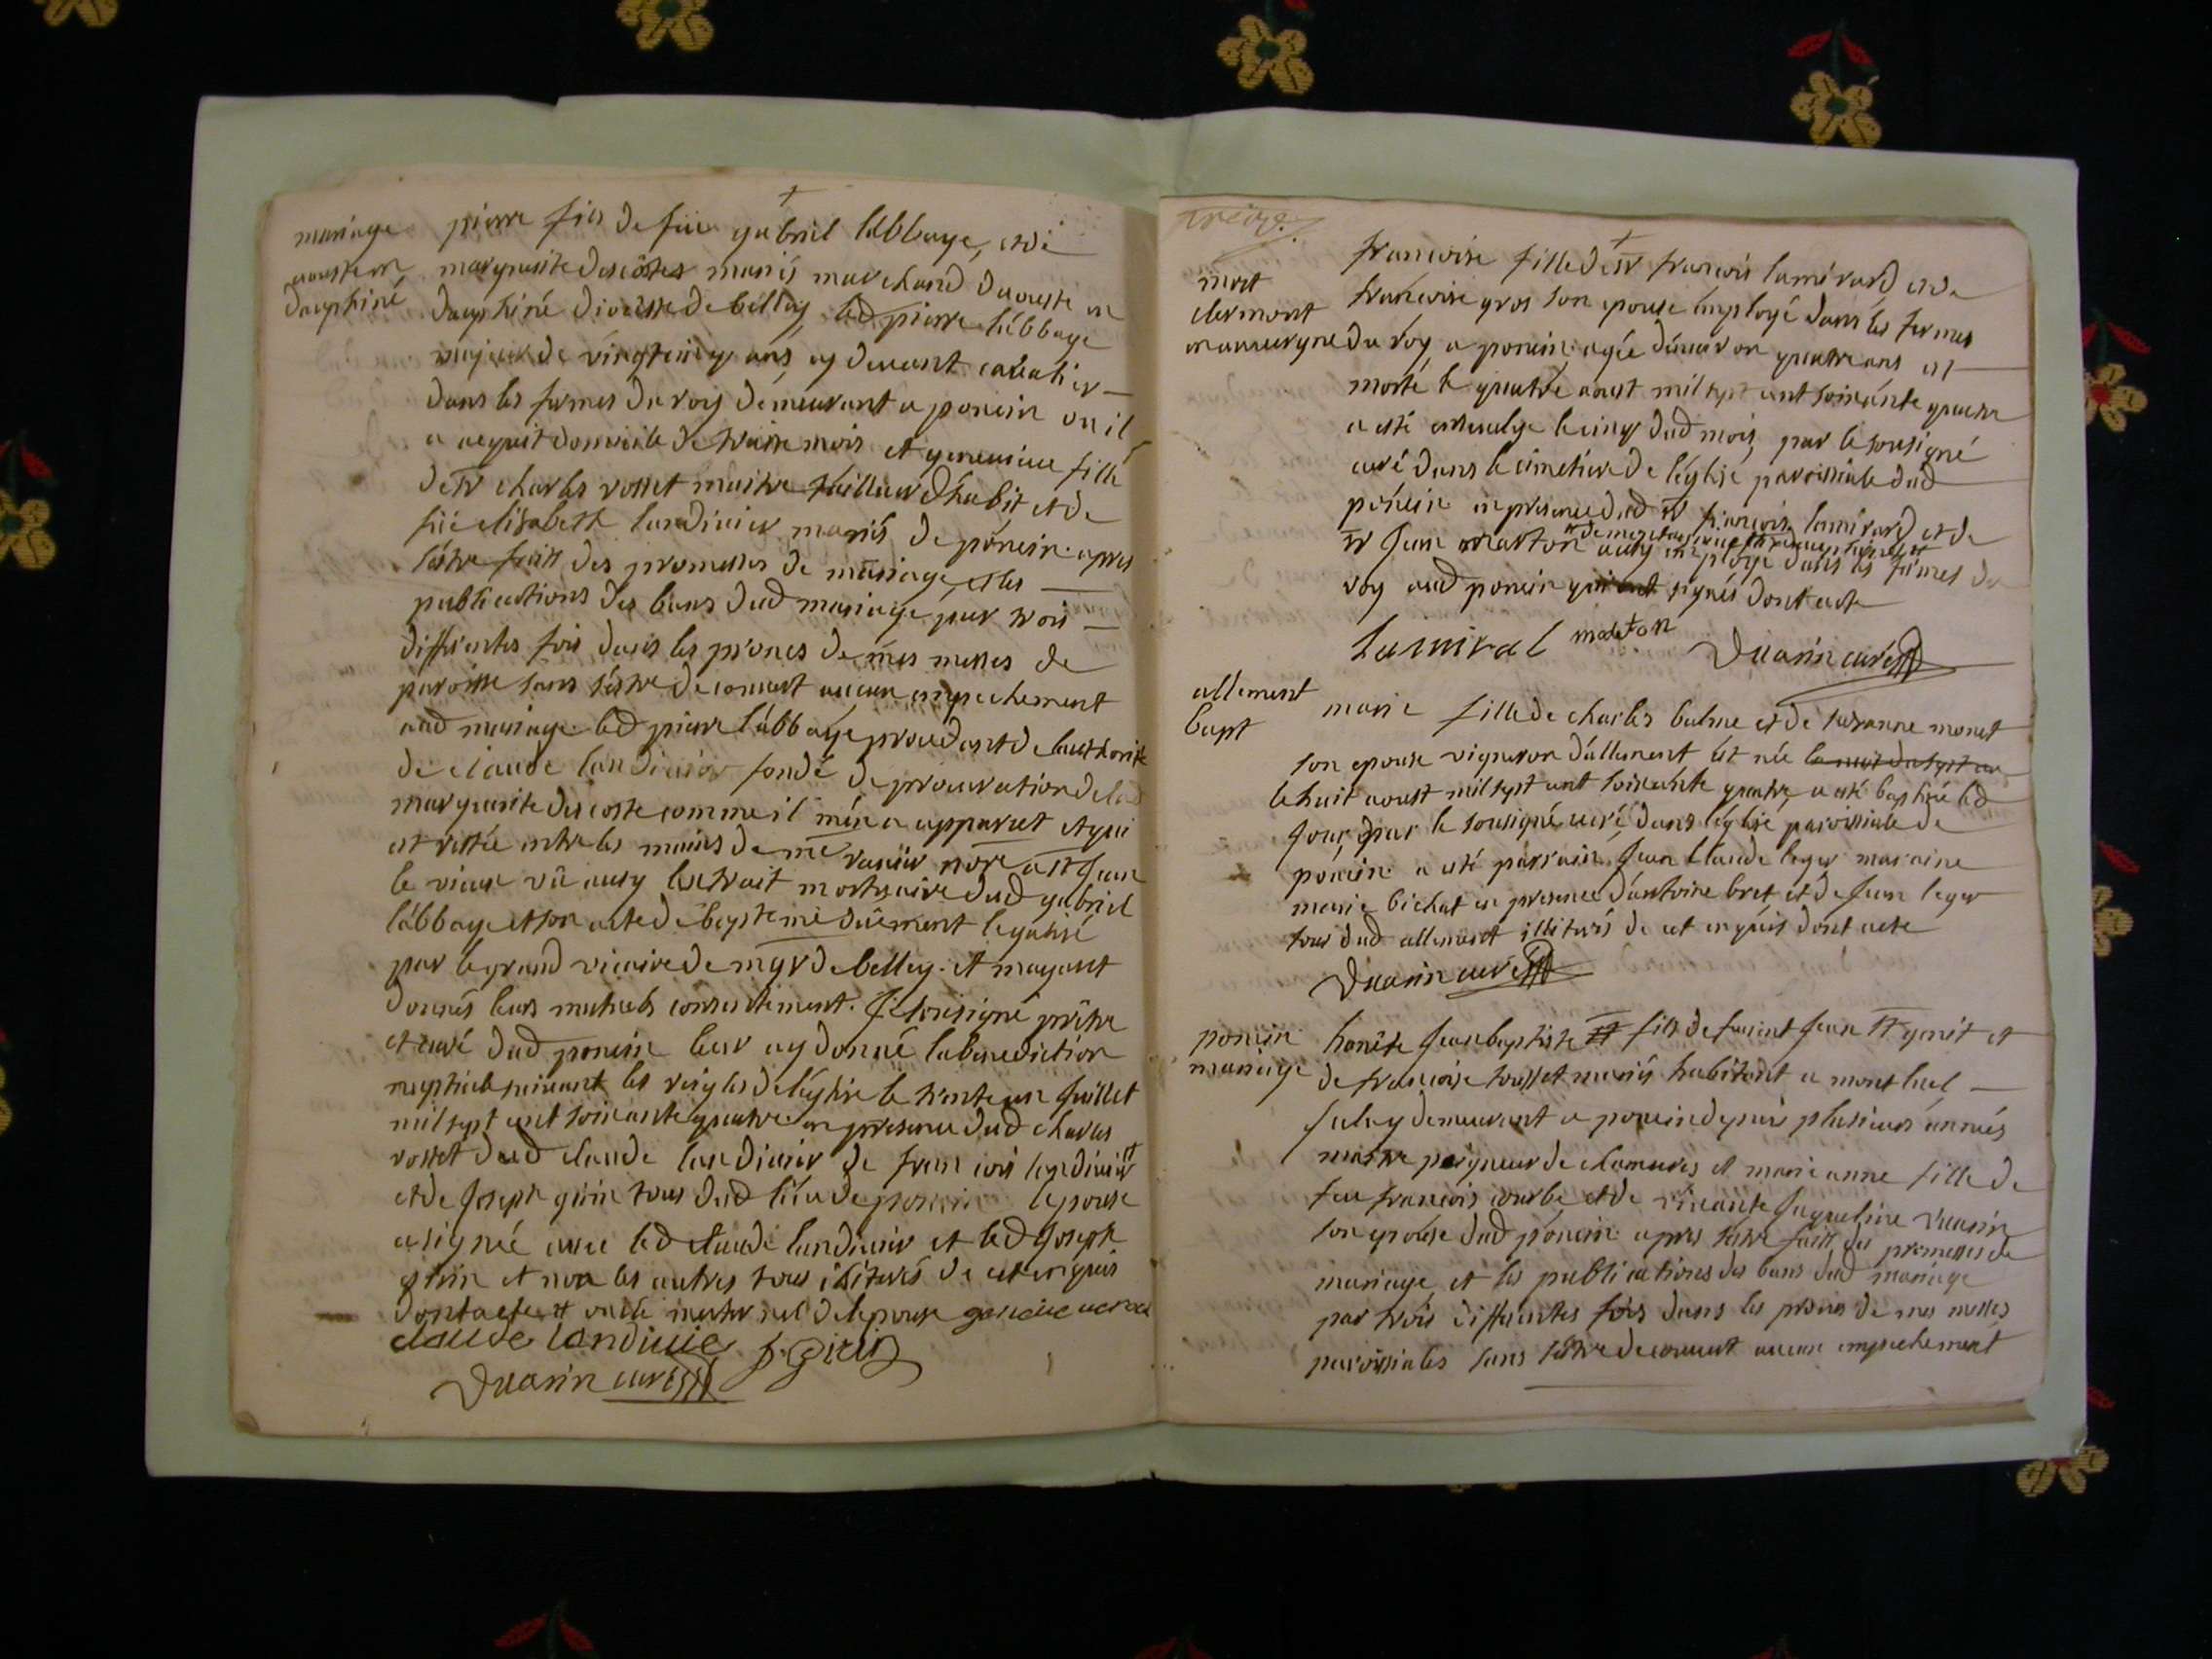 mariage pierre fils de feu gabriel labbaye, et de
aouste en marguerite descostes mariés marchand daouste en
dauphiné dauphiné diocesse de belley, led pierre labbaye
majeur de vingtcinq ans, cy devant cavalier
dans les fermes du roy demeurant a poncin ou il
a acquit domicile de treise mois et genevieve fille
de sr charles rosset maitre tailleur dhabit et de
feüe elisabeth landivier mariés de poncin apres
sestre faits des promesses de mariage, et les
publications des bans dud mariage par trois
differentes fois dans les prones de mes messes de
paroisse sans sestre decouvert aucun empechement
aud mariage led pierre labbaye procedant de lauthorité
de claude landivier fondé de procuration de lad
marguerite descoste comme il men a apparut et qui
est restée entre les mains de me not a st jean
le vieux vü aussy lextrait mortuaire dud gabriel
labbaye et son acte de bapteme düement legalisé
par le grand vicaire de mgr de belley. et mayant
donnés leurs mutuels consentement. je sousigné prêtre
et curé dud poncin leur ay donné la benediction
nuptiale suivant les reigles de léglise le trente un juillet
mil sept cent soixante quatre en presence dud charles
rosset dud claude landivier de francois landivier
et de joseph girin tous dud lieu de poncin lepouse
a signée avec led claude landivier et led joseph
girin et non les autres tous illiterés de cet enquis
dont acte oncle maternel de lepouse
claude landivie j. girin
Duarin curé
treize
francoise fille de sr francois lamirard et de
mort francoise gros son epouse employé dans les fermes
clermont
en auvergne du roy, a poncin agée denviron quatre ans est
morte le quatre aoust mil sept cent soixante quatre
a esté ensevelye le cinq dud mois, par le sousigné
curé dans le cimetiere de léglise paroissiale dud
poncin en presence dud sr francois lamirard et de
sr jean marton aussy employé dans les fermes du
roy aud poncin qui ont signés dont acte
Lamiral marton Duarin curé
allement marie fille de charles balme et de susanne monet
bapt son epouse vigneron dallement est née
le huit aoust mil sept cent soixante quatre, a esté baptisée led
jour par le sousigné curé, dans léglise paroissiale de
poncin a esté parrain jean claude leger maraine
marie bichat en presence dantoine bret et de jean leger
tous dud allement illiterés de cet enquis dont acte
Duarin curé
poncin honête jean baptiste fils de jean st genit et
mariage de francoise tousset mariés habitant a mont luel
demeurant a poncin depuis plusieurs années
maitre peigneur de chanvres et marie anne fille de
feu francois courbe et de vivante jaqueline duarin
son epouse dud poncin apres sestre faits des promesses de
mariage, et les publications des bans dud mariage
par trois differentes fois dans les prones de mes messes
paroissiales sans sestre decouvert aucun empechement